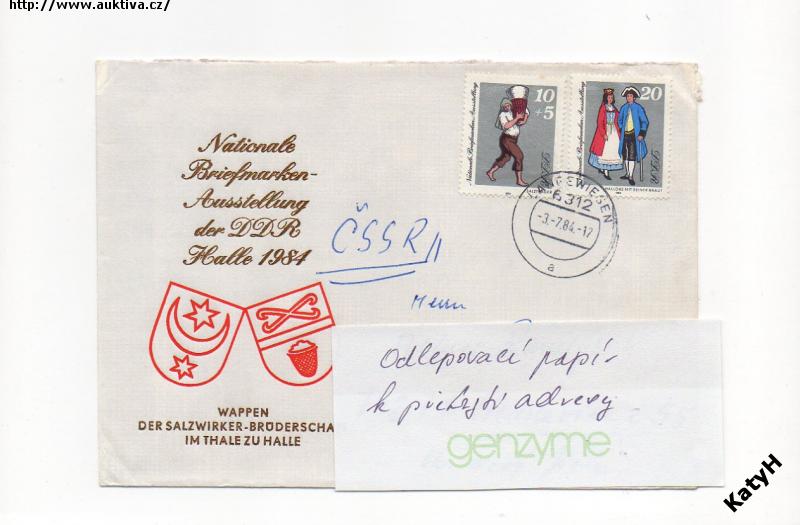 http://www.auktiva.cz/
Nationale
Briefmarken-
Ausstellung
der DDR
Halle 1984
10
+5
Nationale Briefmarken-Ausstellung
DDR
20
Nationale Briefmarken-Ausstellung
DDR
HALLORE MIT SEINER BRAUT
6312
-3.-7.84.-12
a
ČSSR
Herrn
WAPPEN
DER SALZWIRKER-BRÜDERSCHA
IM THALE ZU HALLE
Odlepovací papír
k přikrytí adresy
genzyme
KatyH